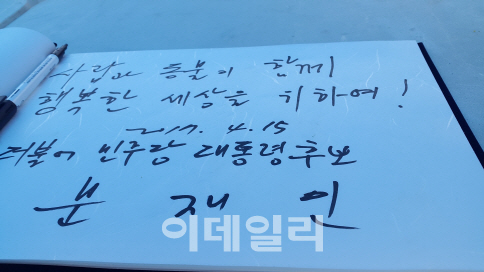 사람과 동물이 함께
행복한 세상을 위하여!
2017. 4.15
더불어 민주당 대통령후보
문 재 인
이데일리